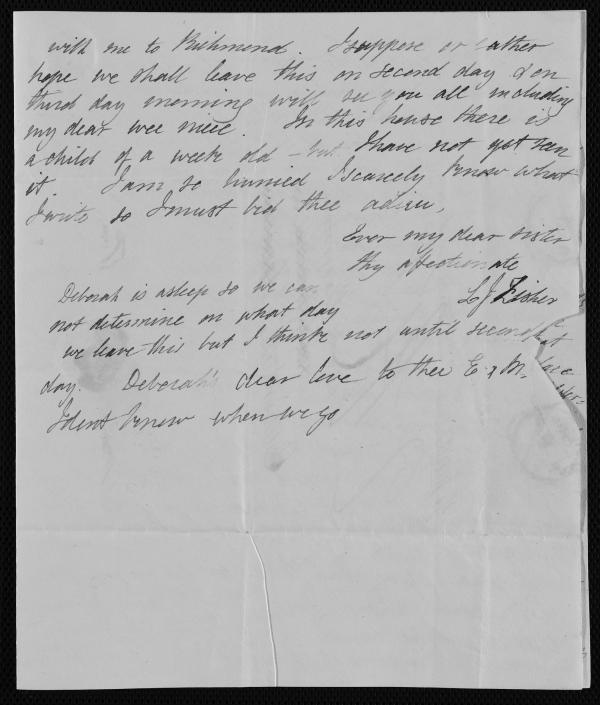 with me to Richmond. I suppose or rather
hope we shall leave this on second day & on
third day morning will see you all including
my dear wee niece. In this house there is
a child of a week old - but I have not yet seen
it. I am so hurried I scarcely know what
I write so I must bid thee adieu,
Ever my dear sister
thy affectionate
L J Fisher
Deborah is asleep so we can
not determine on what day
we leave this but I think not until second
day. Deborah's dear love to thee E & M.
I dont know when we go